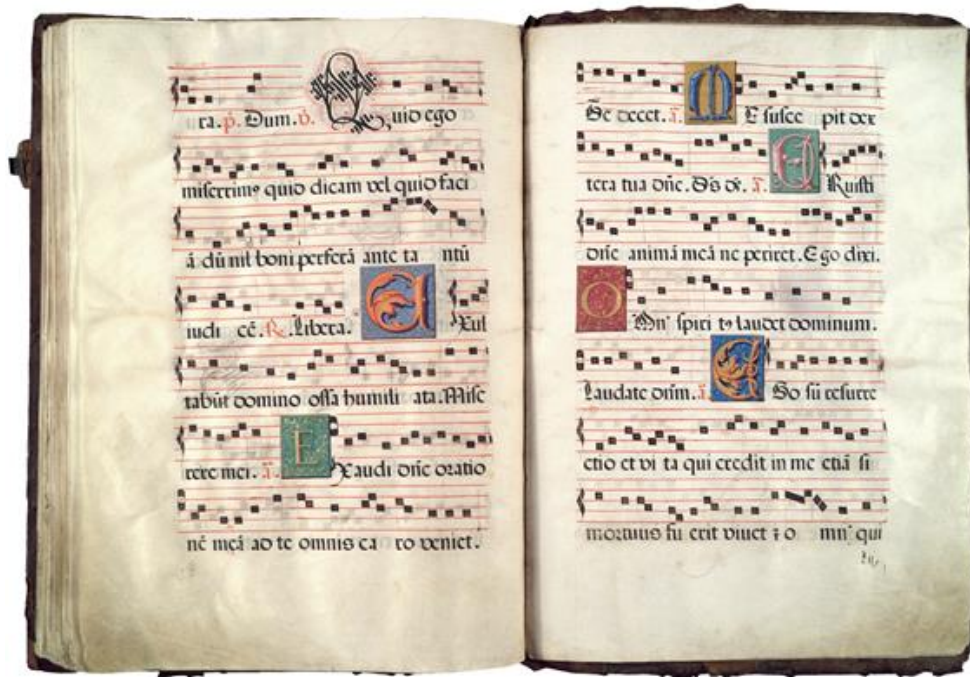 ra. p̃. Dum. ṽ. Quid ego
miserrimꝰ quid dicam vel quid faci
ā dū nil boni perferā ante ta ntū
iudi cē. R̃. Libera. Exul
tabūt domino ossa humili ata. Mise
rere mei. ã. Exaudi dñe oratio
nē meā ad te omnis ca ro veniet.
Te decet. ã. Me susce pit dex
tera tua dñe. Ds ds. ã. Eruisti
dñe animā meā ne periret. Ego dixi.
Omn̄ spiri tꝰ laudet dominum.
Laudate dñm. ã. Ego sū resurre
ctio et vi ta qui credit in me etiā si
mortuus fu erit vivet ⁊ o mn̄ qui